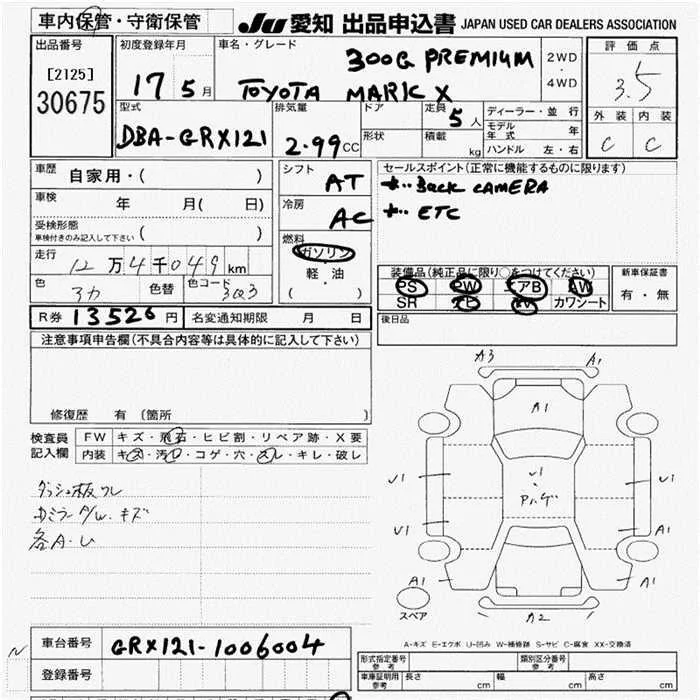 車内保管・守衛保管 JU 愛知 出品申込書 JAPAN USED CAR DEALERS ASSOCIATION
出品番号 [2125] 30675
初度登録年月 17 5月
車名・グレード TOYOTA MARK X 300G PREMIUM
2WD・4WD
評価点 3.5
外装 C 内装 C
型式 DBA-GRX121
排気量 2.99CC
ドア 形状
定員 5人
積載 kg
ディーラー・並行
モデル年式 年
ハンドル 左・右
車歴 自家用・( )
車検 年 月( 日)
受検形態 車検付きのみ記入して下さい ( )
走行 12万4千049km
色 色替 色コード 3Q3
シフト AT
冷房 AC
燃料 ガソリン
軽・油
( )
セールスポイント(正常に機能するものに限ります)
Back CAMERA
ETC
装備品(純正品に限り○をつけてください)
PS PW エアB AW
SR ナビ TV カワシート
新車保証書 有・無
R券 13526円 名変通知期限 月 日
後日品
注意事項申告欄(不具合内容等は具体的に記入して下さい)
修復歴 有 (箇所 )
検査員記入欄
FW キズ・飛石・ヒビ割・リペア跡・X要
内装 キズ・汚レ・コゲ・穴・スレ・キレ・破レ
ダッシュ板ワレ
各A・U
A3 A1
A1
U1 U1 U1
U1 A1
A1 A1
スペア
A2
A-キズ E-エクボ U-凹み W-補修跡 S-サビ C-腐食 XX-交換済
車台番号 GRX121-1006004
登録番号
N
形式指定番号 参考
類別区分番号 参考
車庫証明用 参考 長さ cm 幅 cm 高さ cm